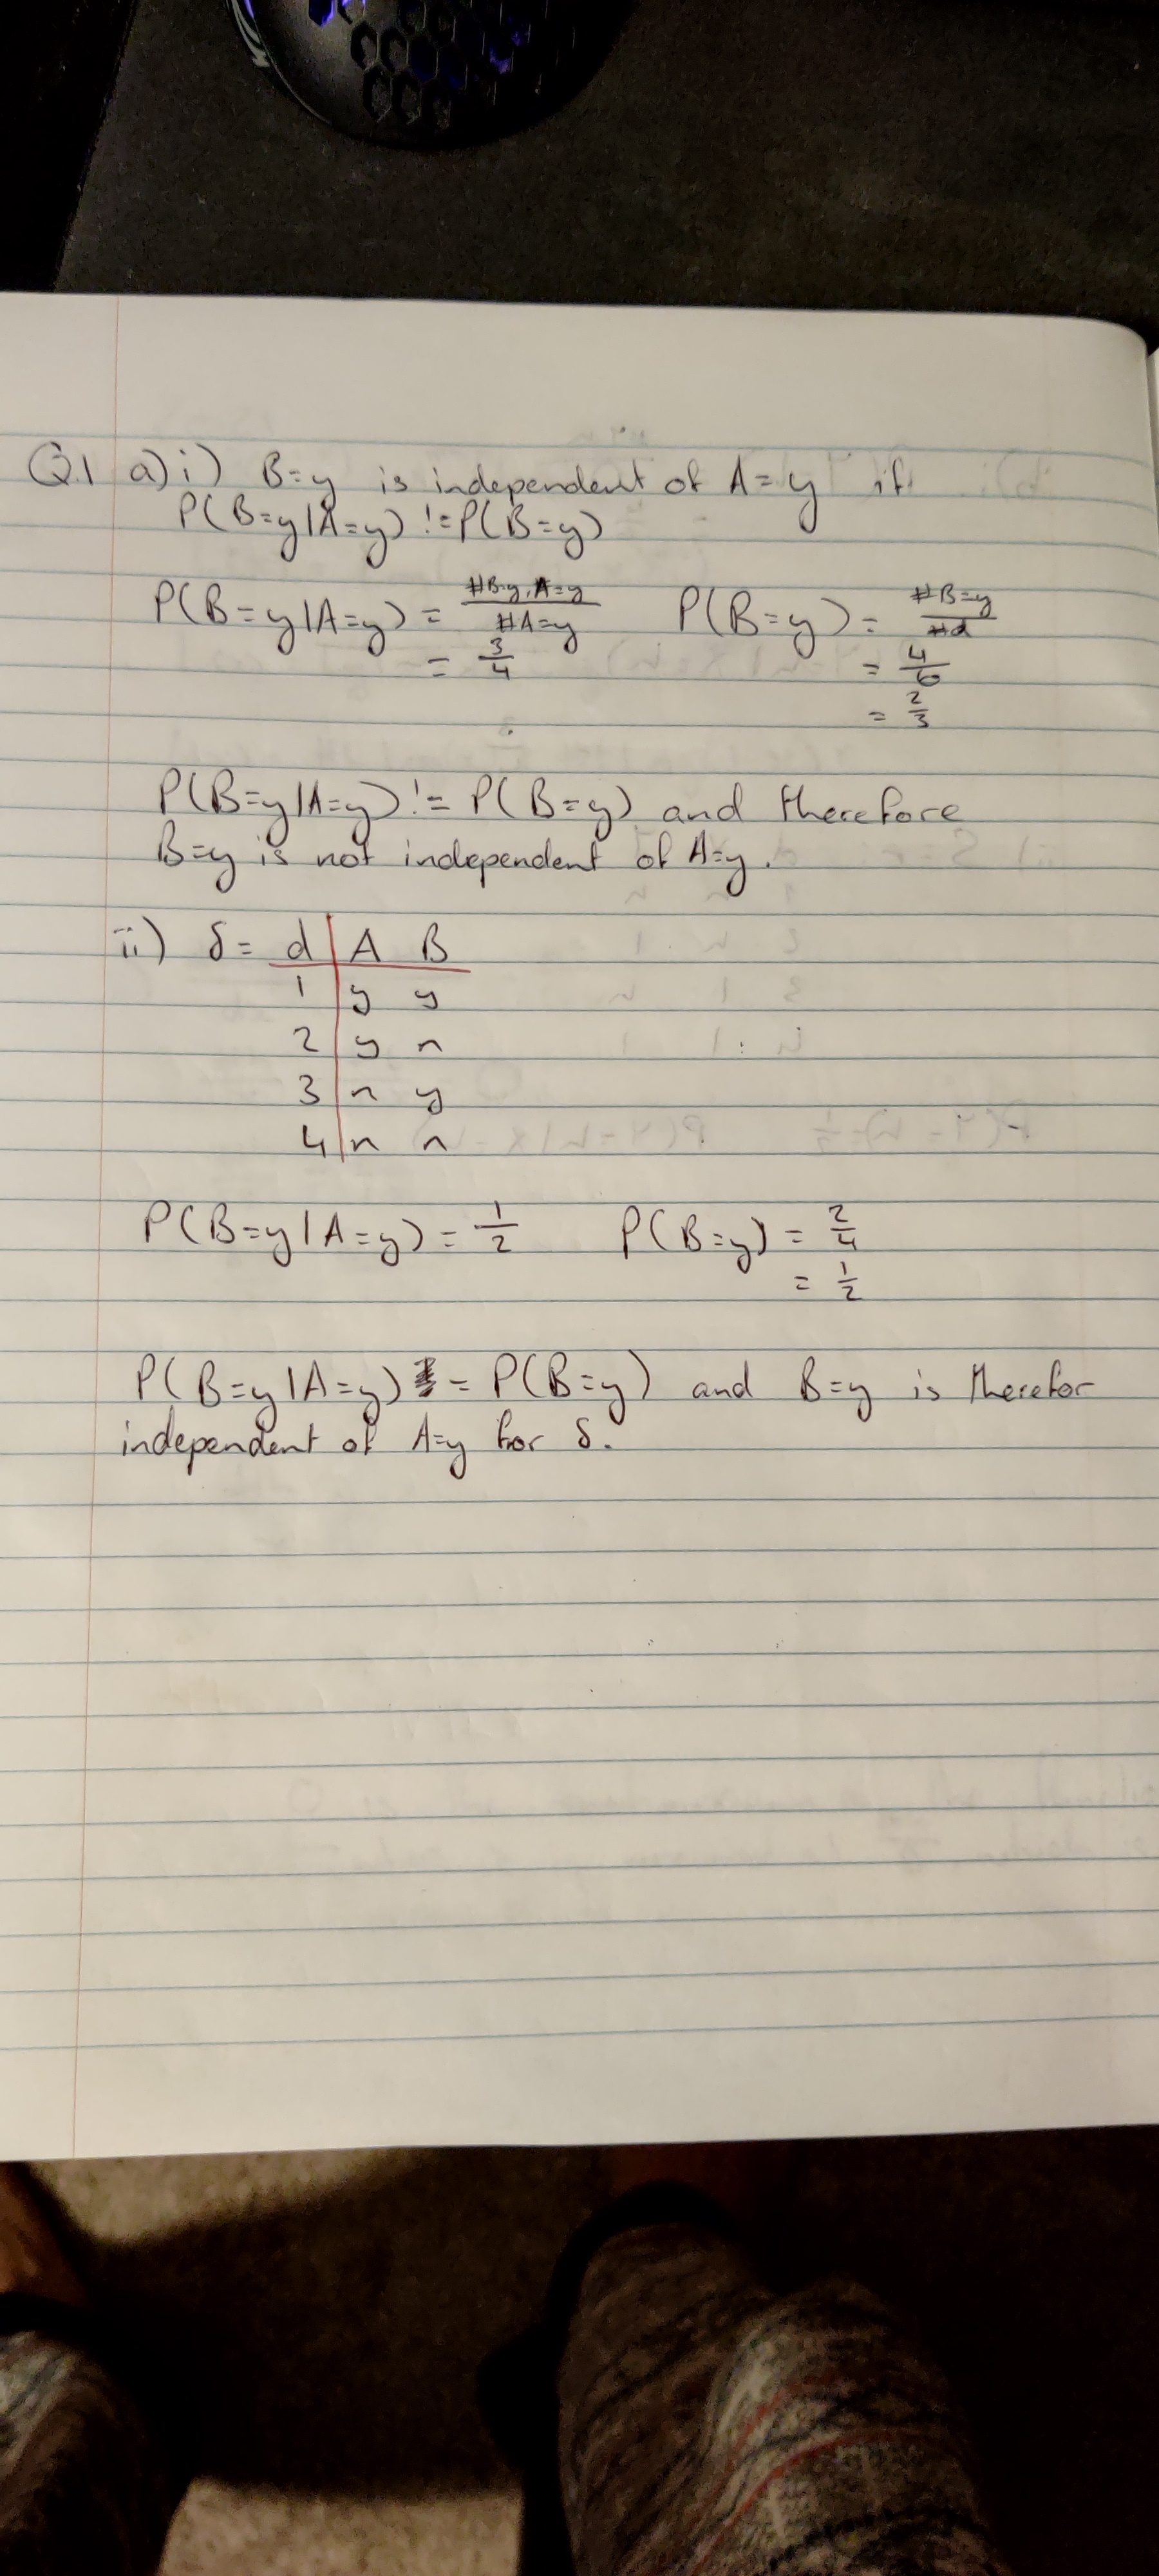 Q1 a) i) B=y is independent of A=y if
P(B=y|A=y) != P(B=y)
P(B=y|A=y) = #B=y, A=y / #A=y P(B=y) = #B=y / #d
= 3/4 = 4/6
= 2/3
P(B=y|A=y) != P(B=y) and therefore
B=y is not independent of A=y.
ii) δ= d | A B
1 | y y
2 | y n
3 | n y
4 | n n
P(B=y|A=y) = 1/2 P(B=y) = 2/4
= 1/2
P(B=y|A=y) = P(B=y) and B=y is therefor
independent of A=y for δ.